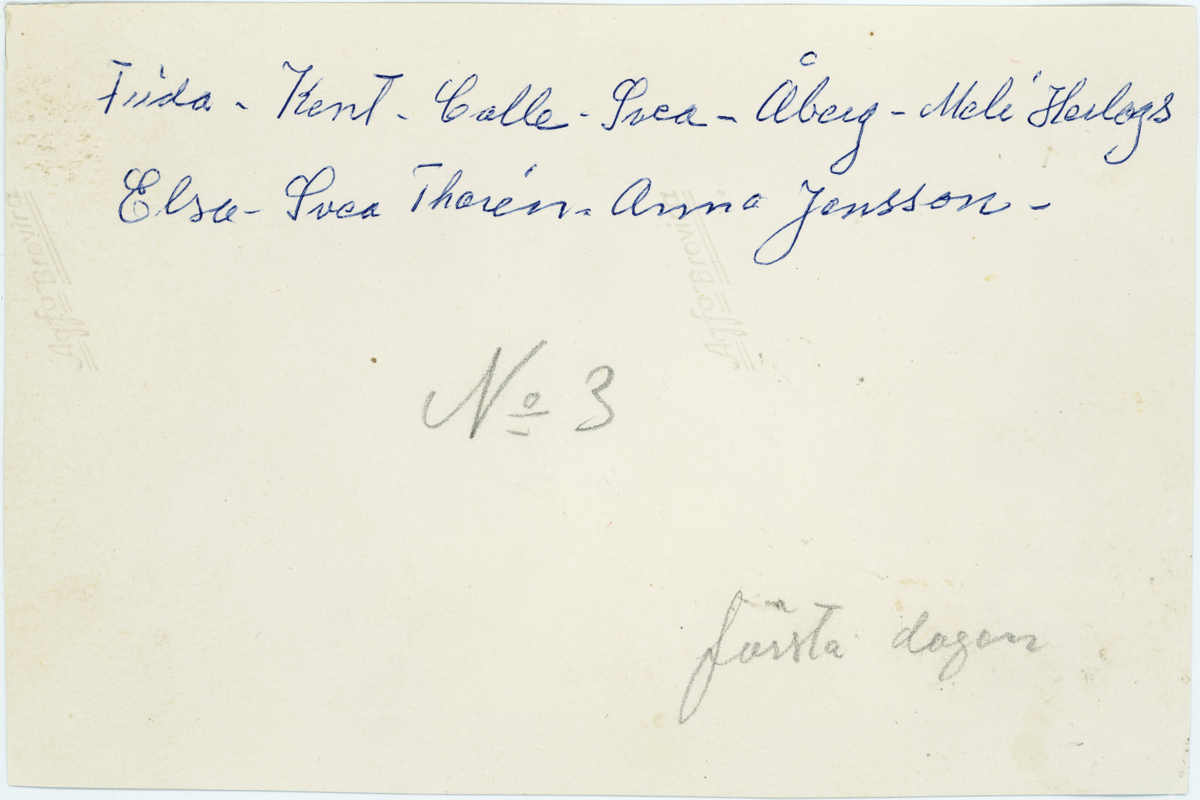 Frida - Kent - Calle - Svea - Åberg - Meli Herlogs
Elsa - Svea Thorén - Anna Jonsson -
Agfa Brovira
Agfa Brovira
No 3
första dagen